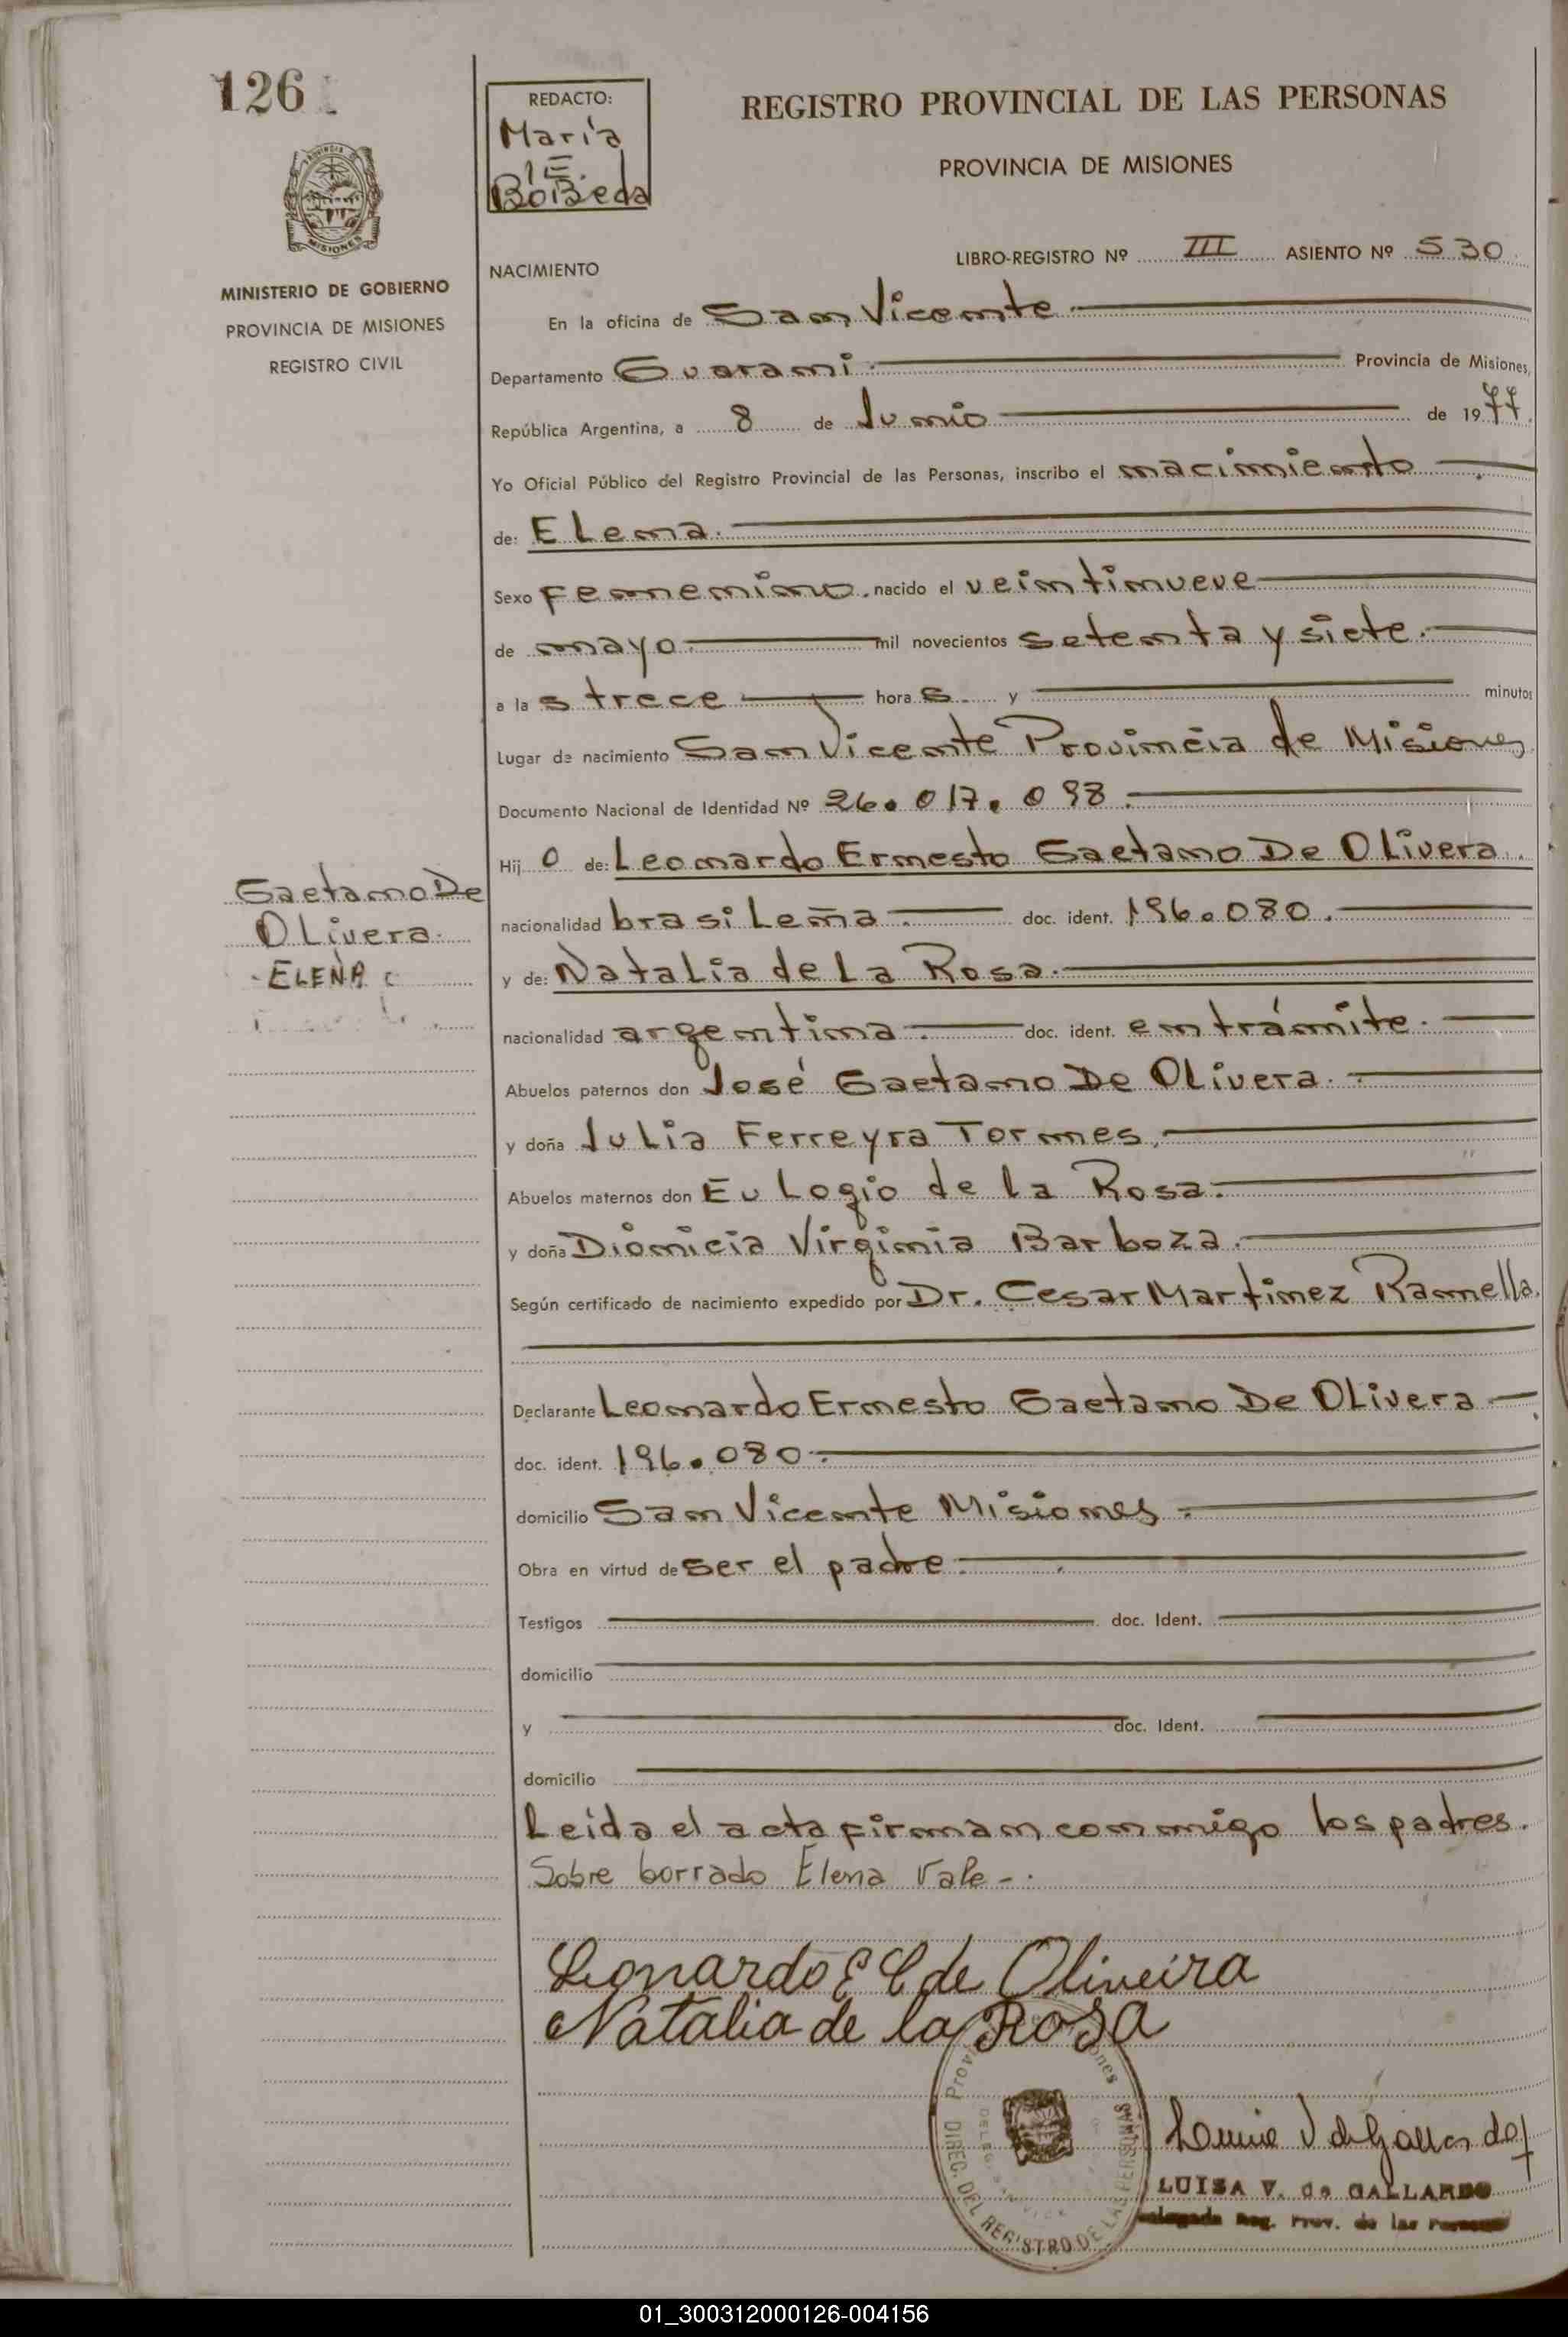 126
REDACTO:
María
E.
BoBeda
REGISTRO PROVINCIAL DE LAS PERSONAS
PROVINCIA DE MISIONES
MISIONES
MINISTERIO DE GOBIERNO
PROVINCIA DE MISIONES
REGISTRO CIVIL
LIBRO-REGISTRO Nº III ASIENTO Nº 530
NACIMIENTO
En la oficina de San Vicente
Departamento Guarani Provincia de Misiones,
República Argentina, a 8 de Junio de 1977
Yo Oficial Público del Registro Provincial de las Personas, inscribo el nacimiento
de: Elena.
Sexo femenino. nacido el veintinueve
de mayo mil novecientos setenta y siete.
a las trece horas y minutos
Lugar de nacimiento San Vicente Provincia de Misiones
Documento Nacional de Identidad Nº 26.017.098
Hijo de: Leonardo Ernesto Gaetano De Olivera.
nacionalidad brasileña doc. ident. 196.080.
y de: Natalia de La Rosa.
nacionalidad argentina doc. ident. en trámite.
Abuelos paternos don José Gaetano De Olivera.
y doña Julia Ferreyra Tornes.
Abuelos maternos don Eulogio de la Rosa.
y doña Dionicia Virginia Barboza.
Según certificado de nacimiento expedido por Dr. Cesar Martinez Ramella.
Declarante Leonardo Ernesto Gaetano De Olivera
doc. ident. 196.080
domicilio San Vicente Misiones
Obra en virtud de ser el padre.
Testigos doc. Ident.
domicilio
y doc. Ident.
domicilio
Leida el acta firman conmigo los padres.
Sobre borrado Elena Vale -.
Gaetano De
Olivera
ELENA
Leonardo E G de Oliveira
Natalia de la Rosa
DIREC. DEL REGISTRO DE LAS PERSONAS
LUISA V. de GALLARDO
Delegada Reg. Prov. de las Personas
01_300312000126-004156